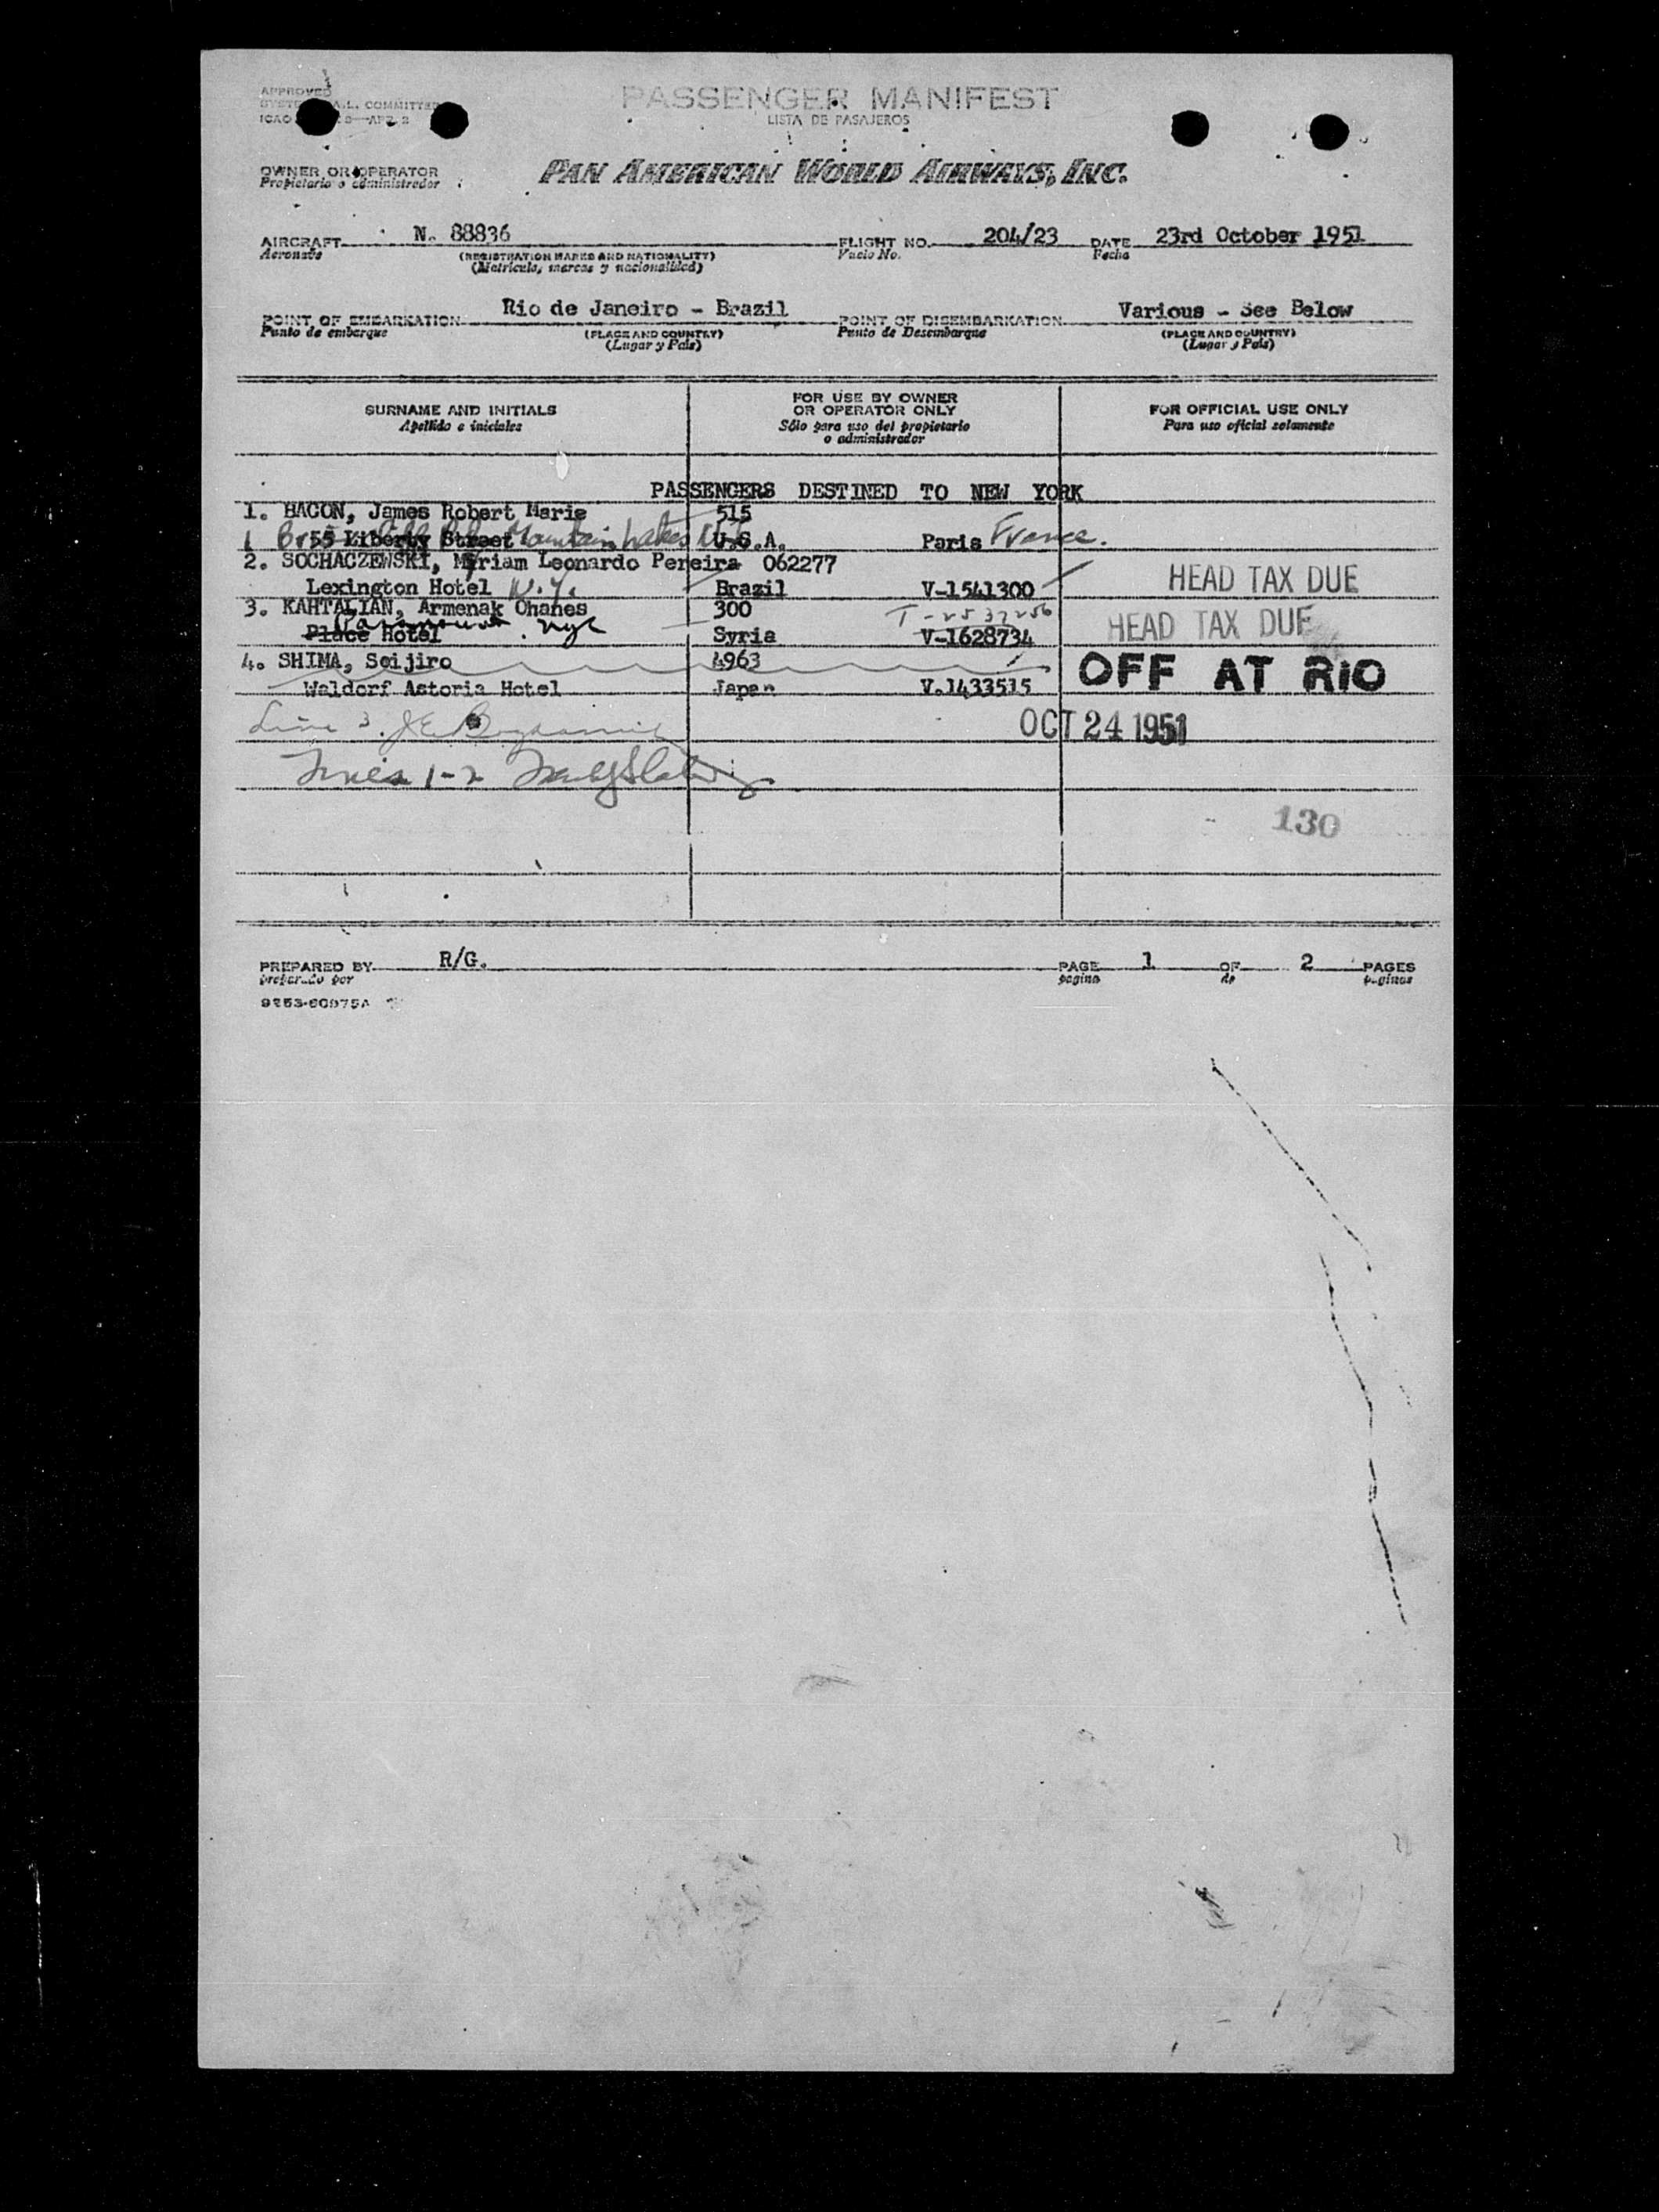 APPROVED
PASSENGER MANIFEST
A.L. COMMITTEE
LISTA DE PASAJEROS
ICAO
OWNER OR OPERATOR
Propietario o administrador
PAN AMERICAN WORLD AIRWAYS, INC.
AIRCRAFT N. 88836 FLIGHT NO. 204/23 DATE 23rd October 1951
Aeronave (REGISTRATION MARKS AND NATIONALITY) Vuelo No. Fecha
(Matricula, marcas y nacionalidad)
POINT OF EMBARKATION Rio de Janeiro - Brazil POINT OF DISEMBARKATION Various - See Below
Punto de embarque (PLACE AND COUNTRY) Punto de Desembarque (PLACE AND COUNTRY)
(Lugar y País) (Lugar y País)
SURNAME AND INITIALS FOR USE BY OWNER OR OPERATOR ONLY FOR OFFICIAL USE ONLY
Apellido e iniciales Sólo para uso del propietario o administrador Para uso oficial solamente
PASSENGERS DESTINED TO NEW YORK
1. BACON, James Robert Marie 515
55 Liberty Street Mountain Lakes U.S.A. Paris France.
2. SOCHACZEWSKI, Myriam Leonardo Pereira 062277
Lexington Hotel N.Y. Brazil V-1541300 HEAD TAX DUE
3. KAHTALIAN, Armenak Ohanes 300 T-2537256
Place Hotel nyc Syria V-1628734 HEAD TAX DUE
4. SHIMA, Seijiro 4963
Waldorf Astoria Hotel Japan V.1433515 OFF AT RIO
Line 3.
OCT 24 1951
Lines 1-2
130
PREPARED BY R/G. PAGE 1 OF 2 PAGES
preparado por pagina de paginas
9253-60975A